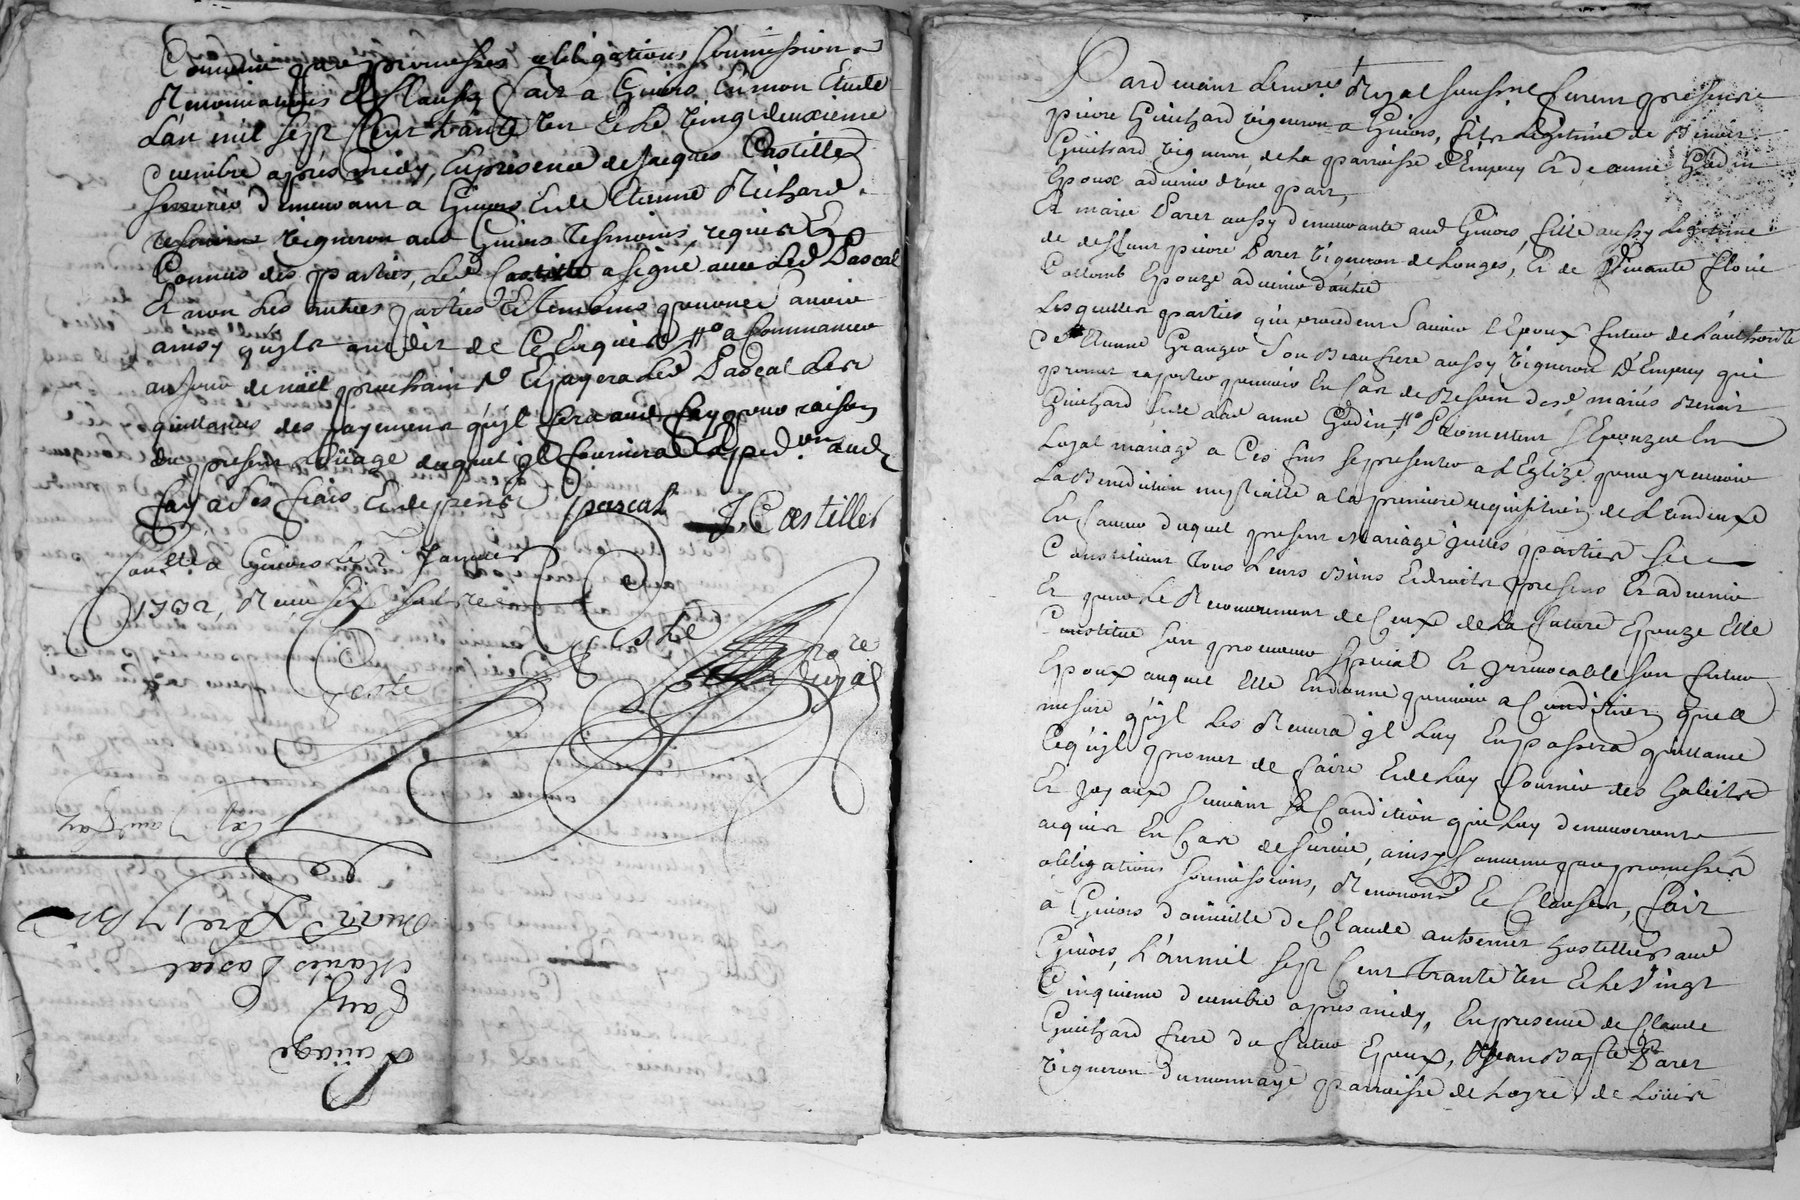 Comme par promesses obligations soumission
Renonciations et clauses fait a Givors En mon Etude
L'an mil sept Cent trante un Et le vingt deuxieme
decembre après midy, En presence de Jacques Castillet
demeurant a Givors Et de Etienne Richard
vigneron aud Givors tesmoins requis Et
Connus des parties, led Castillet a signé avec led Pascal
Et non les autres parties Et temoins pour ne sçavoir
ainsy qu'yls ont dit de Ce Enquis a Commancer
au jour de noël prochain Et payera led Pascal les
quittances des payemens qu'yl fera aud fay pour raison
du present loüage duquel il fournira Exped.on aud
fay a ses frais Et depens
pascal J Castillet
a Givors le janvier
1732, Receu six sols
Coste
Coste
nore
Royal
10 xbre 1731
Mariés Pascal
fay
Loüage
Pardevant le no.re Royal soussigné furent presens
pierre Guichard vigneron a Givors, fils legitime de Benoit
Guichard vigneron de la parroisse d'Empuy Et de anne Godin
Epoux advenir d'une part,
Et marie Paret aussy demeurante aud Givors, fille aussy legitime
de deffunt pierre Paret vigneron de Longes, Et de vivante florie
Collomb Epouze advenir d'autre
Lesquelles parties qui procedent sçavoir l'Epoux futur de l'authorité
de Etienne Granger son Beaufrere aussy vigneron d'Empuy qui
promet raporter pouvoir En Cas de Besoin desd mariés Benoit
Guichard Et de lad anne Godin, Promettent s'Epouzer En
Loyal mariage a Ces fins se presenter a l'Eglize pour y recevoir
La Benediction nuptialle a la premiere requisition de l'un deux
En faveur duquel present Mariage jcelles parties se
Constituent tous leurs Biens Et droits presens Et advenir
Et pour le Recouvrement de Ceux de la future Epouze Elle
Constitue son procureur special Et jrrevocable son futur
Epoux auquel Elle En donne pouvoir a Condition que a
mesure qu'yl les Recevra jl luy En passera quittance
Ce qu'yl promet de faire Et de luy fournir des habits
Et joyaux suivant sa Condition qui luy demeureront
acquis En Cas de survie, ainsy Comme par promesses
obligations soumissions, Renon.ons Et Clauses, fait
à Givors domicille de Claude hostellier aud
Givors, L'an mil sept Cent trante un Et le vingt
Cinquieme decembre apres midy, En presence de Claude
Guichard frere du futur Epoux, Jean Bapte Paret
vigneron parroisse de de Loüis